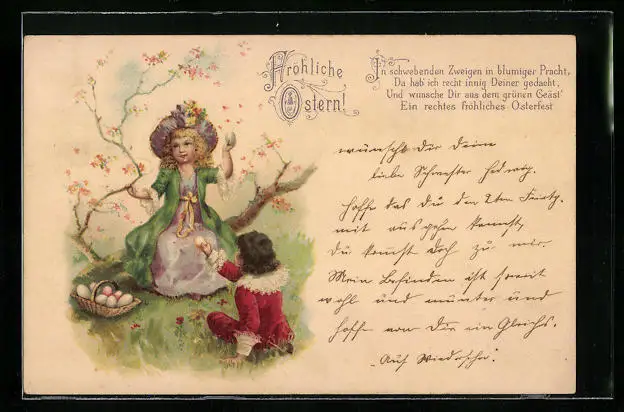 Fröhliche
Ostern!
In schwebenden Zweigen in blumiger Pracht,
Da hab ich recht innig Deiner gedacht,
Und wünsche Dir aus dem grünen Geäst'
Ein rechtes fröhliches Osterfest
wünscht dir deine
liebe Schwester Hedwig.
Hoffe das du den 2ten Feiertg.
mit aus gehen kannst,
du kommst doch zu mir.
Mein Befinden ist soweit
wohl und munter und
hoffe von dir ein Gleiches.
"Auf Wiedersehn".